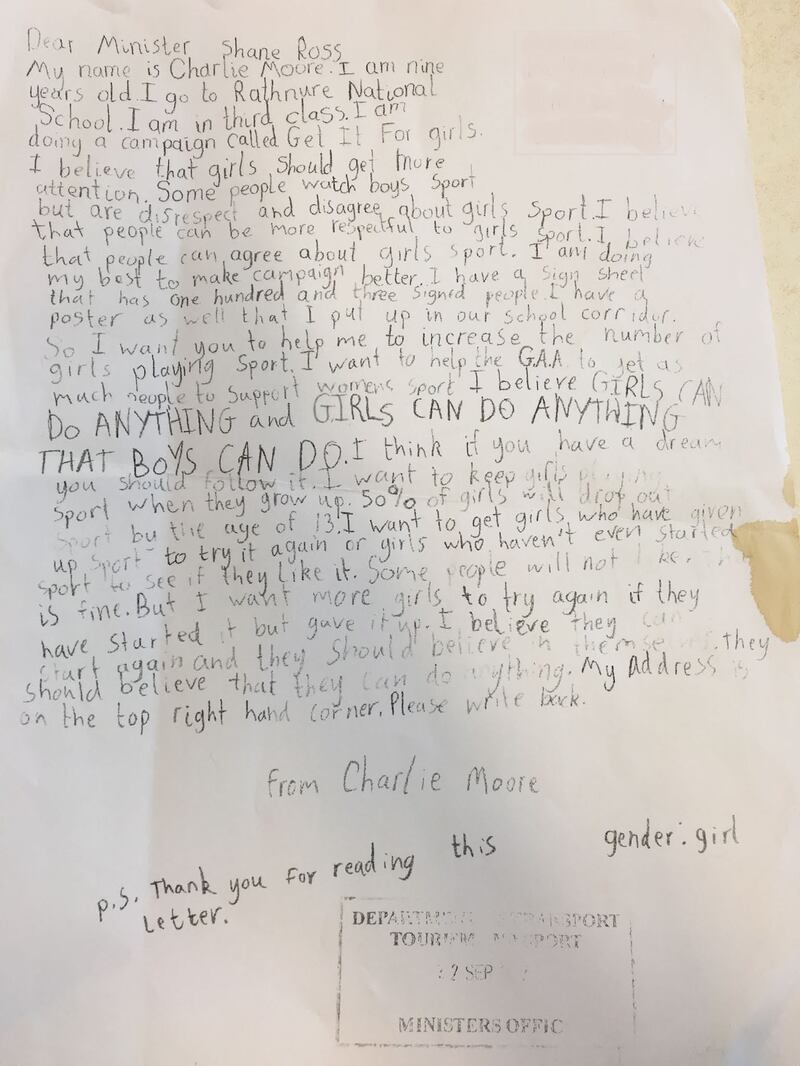 Dear Minister Shane Ross
My name is Charlie Moore. I am nine
years old. I go to Rathnure National
School. I am in third class. I am
doing a campaign called Get It For girls.
I believe that girls should get more
attention. Some people watch boys Sport
but are disrespect and disagree about girls Sport. I believe
that people can be more respectful to girls Sport. I believe
that people can agree about girls sport. I am doing
my best to make campaign better. I have a sign sheet
that has one hundred and three signed people. I have a
poster as well that I put up in our school corridor.
So I want you to help me to increase the number of
girls playing Sport. I want to help the G.A.A to get as
much people to support womens sport I believe GIRLS CAN
DO ANYTHING and GIRLS CAN DO ANYTHING
THAT BOYS CAN DO. I think if you have a dream
you should follow it. I want to keep girls
sport when they grow up. 50% of girls will drop out
Sport by the age of 13. I want to get girls who have given
up sport to try it again or girls who haven't even started
sport to see if they like it. Some people will not
is fine. But I want more girls to try again if they
have started it but gave it up. I believe they can
start again and they should believe in they
should believe that they can do anything. My Address is
on the top right hand corner. Please write back.
from Charlie Moore
gender: girl
p.s. Thank you for reading this
letter.
DEPARTMENT TRANSPORT
TOURISM SPORT
SEP
MINISTERS OFFIC